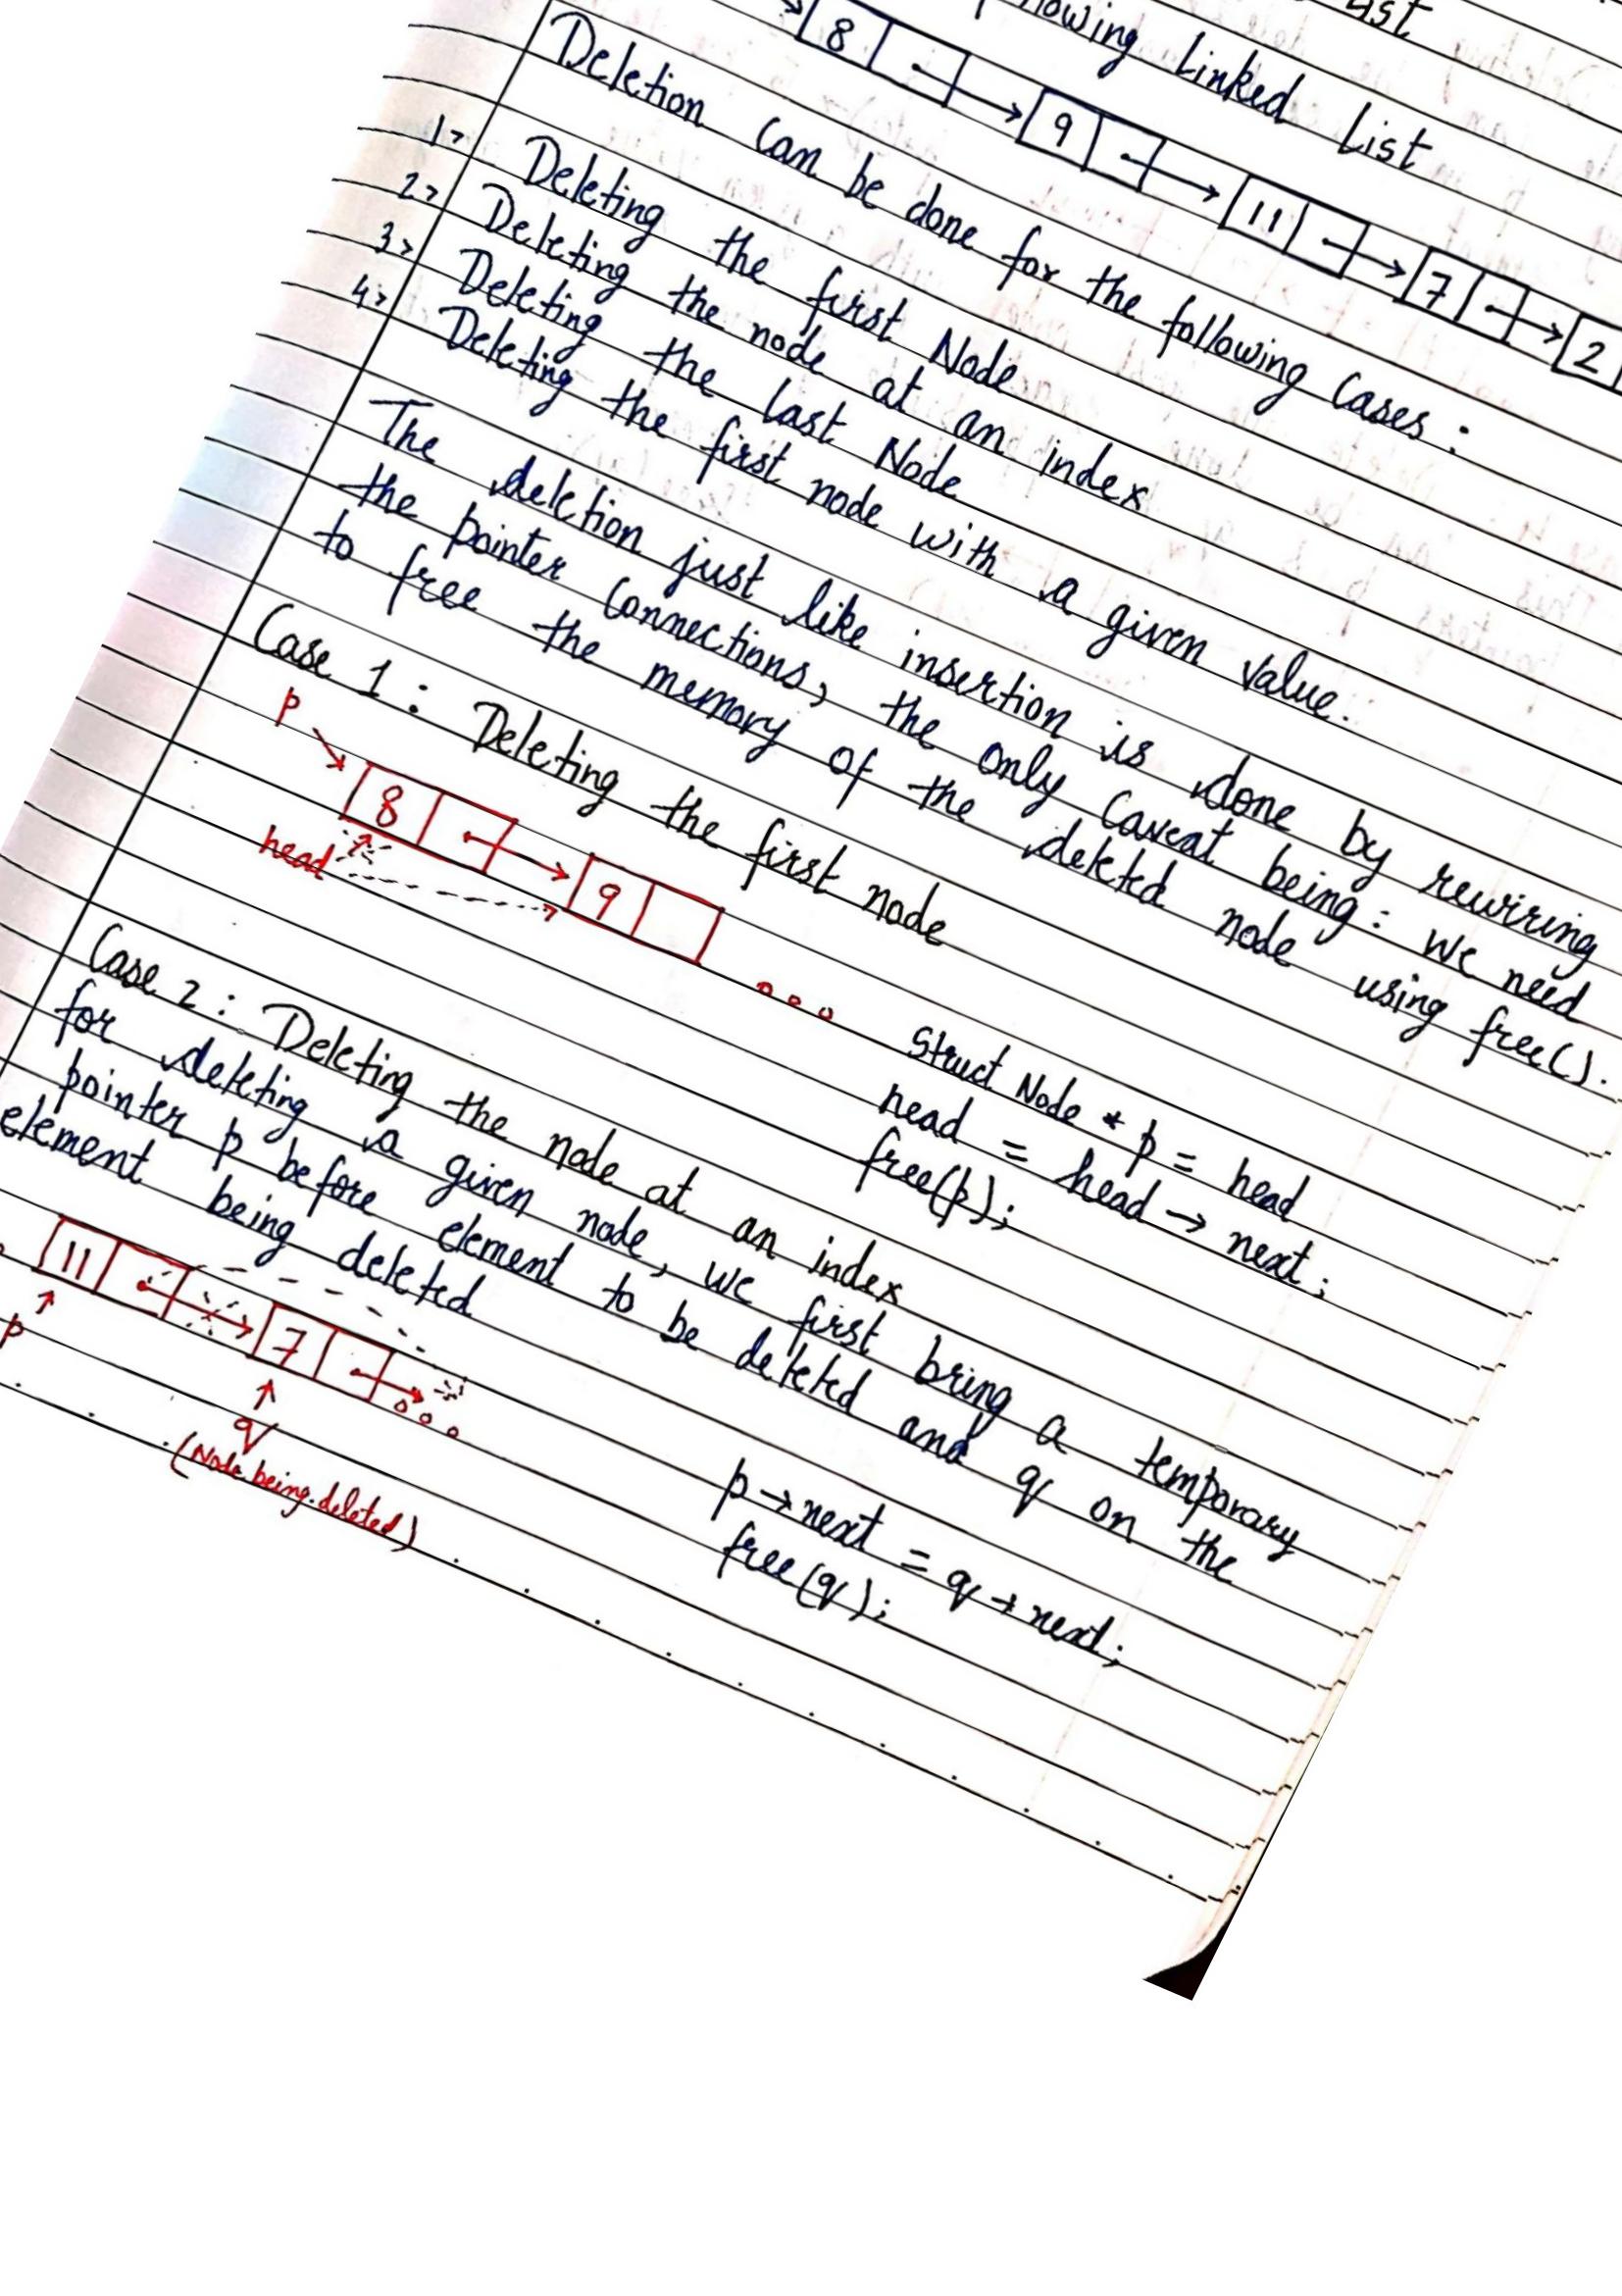 Linked List
8 9 11 7 2
Deletion can be done for the following Cases :
1> Deleting the first Node
2> Deleting the node at an index
3> Deleting the last Node
4> Deleting the first node with a given value.
The deletion just like insertion is done by rewiring
the pointer connections, the only caveat being : we need
to free the memory of the deleted node using free().
Case 1 : Deleting the first node
p
8 9
head
Struct Node * p = head
head = head → next ;
free(p);
Case 2 : Deleting the node at an index
for deleting a given node, we first bring a temporary
pointer p before element to be deleted and q on the
element being deleted
11 7
p
q
(Node being deleted)
p → next = q → next;
free(q);